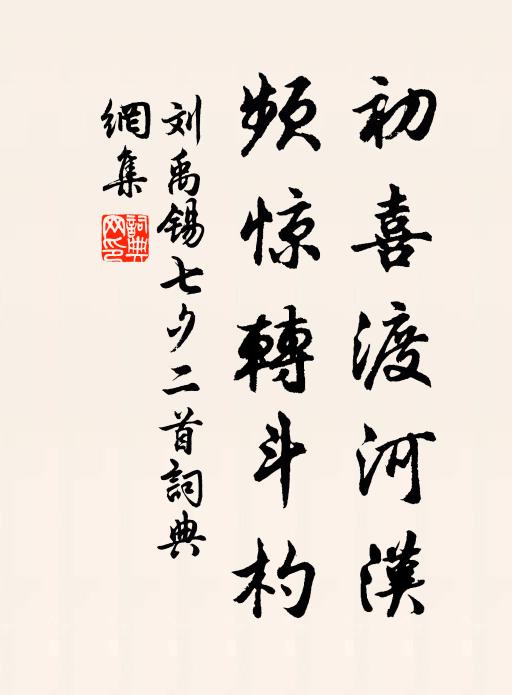 初喜渡河漢
頻惊轉斗杓
刘禹锡七夕二首詞典
網集
詞典網印